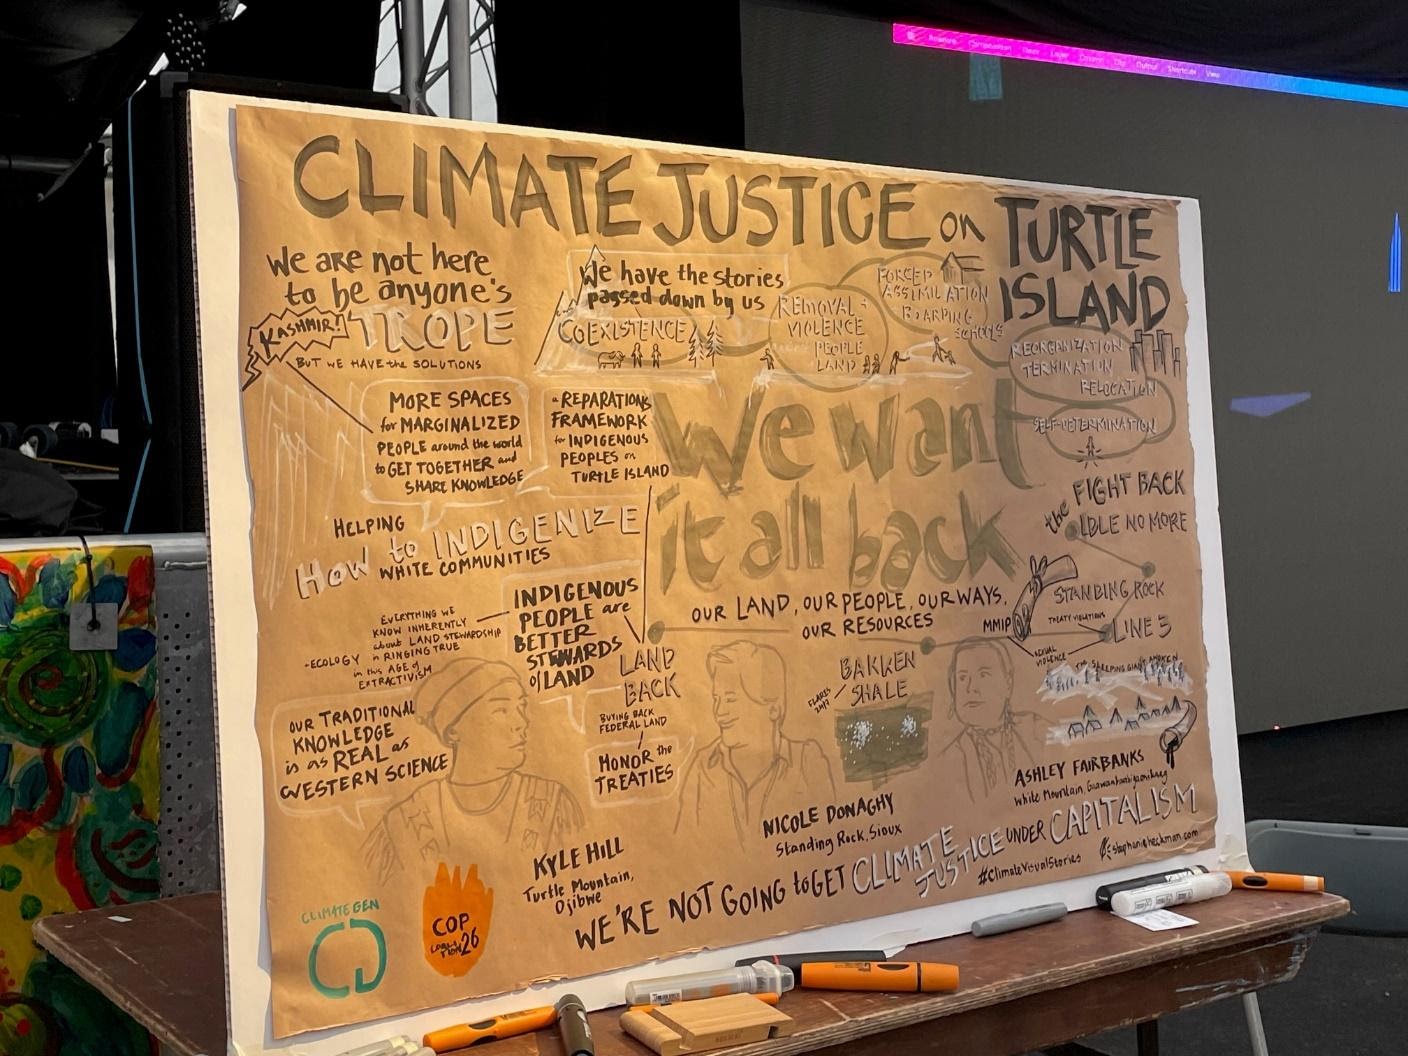 CLIMATE JUSTICE on TURTLE
ISLAND
We are not here
to be anyone's
TROPE
KASHMIR!
BUT WE HAVE the SOLUTIONS
We have the stories
passed down by us
COEXISTENCE
REMOVAL +
VIOLENCE
PEOPLE
LAND
FORCED
ASSIMILATION
BOARDING
SCHOOLS
REORGANIZATION
TERMINATION
RELOCATION
SELF-DETERMINATION
MORE SPACES
for MARGINALIZED
PEOPLE around the world
to GET TOGETHER and
SHARE KNOWLEDGE
a REPARATIONS
FRAMEWORK
for INDIGENOUS
PEOPLES on
TURTLE ISLAND
We want
it all back
OUR LAND, OUR PEOPLE, OUR WAYS,
OUR RESOURCES
the FIGHT BACK
IDLE NO MORE
STANDING ROCK
TREATY VIOLATIONS
LINE 3
MMIP
SEXUAL
VIOLENCE
SLEEPING GIANT
HELPING
How to INDIGENIZE
WHITE COMMUNITIES
INDIGENOUS
PEOPLE are
BETTER
STEWARDS
of LAND
EVERYTHING WE
KNOW INHERENTLY
about LAND STEWARDSHIP
-ECOLOGY is RINGING TRUE
in this AGE of
EXTRACTIVISM
LAND
BACK
BUYING BACK
FEDERAL LAND
HONOR the
TREATIES
BAKKEN
SHALE
FLARES
24/7
OUR TRADITIONAL
KNOWLEDGE
is as REAL as
WESTERN SCIENCE
KYLE HILL
Turtle Mountain,
Ojibwe
NICOLE DONAGHY
Standing Rock, Sioux
ASHLEY FAIRBANKS
White Mountain,
WE'RE NOT GOING to GET CLIMATE JUSTICE UNDER CAPITALISM
#ClimateVisualStories
stephanieheckman.com
CLIMATE GEN
COP
26